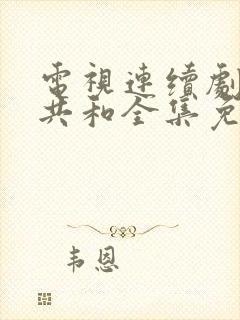 電視連續劇
共和全集免
韦恩